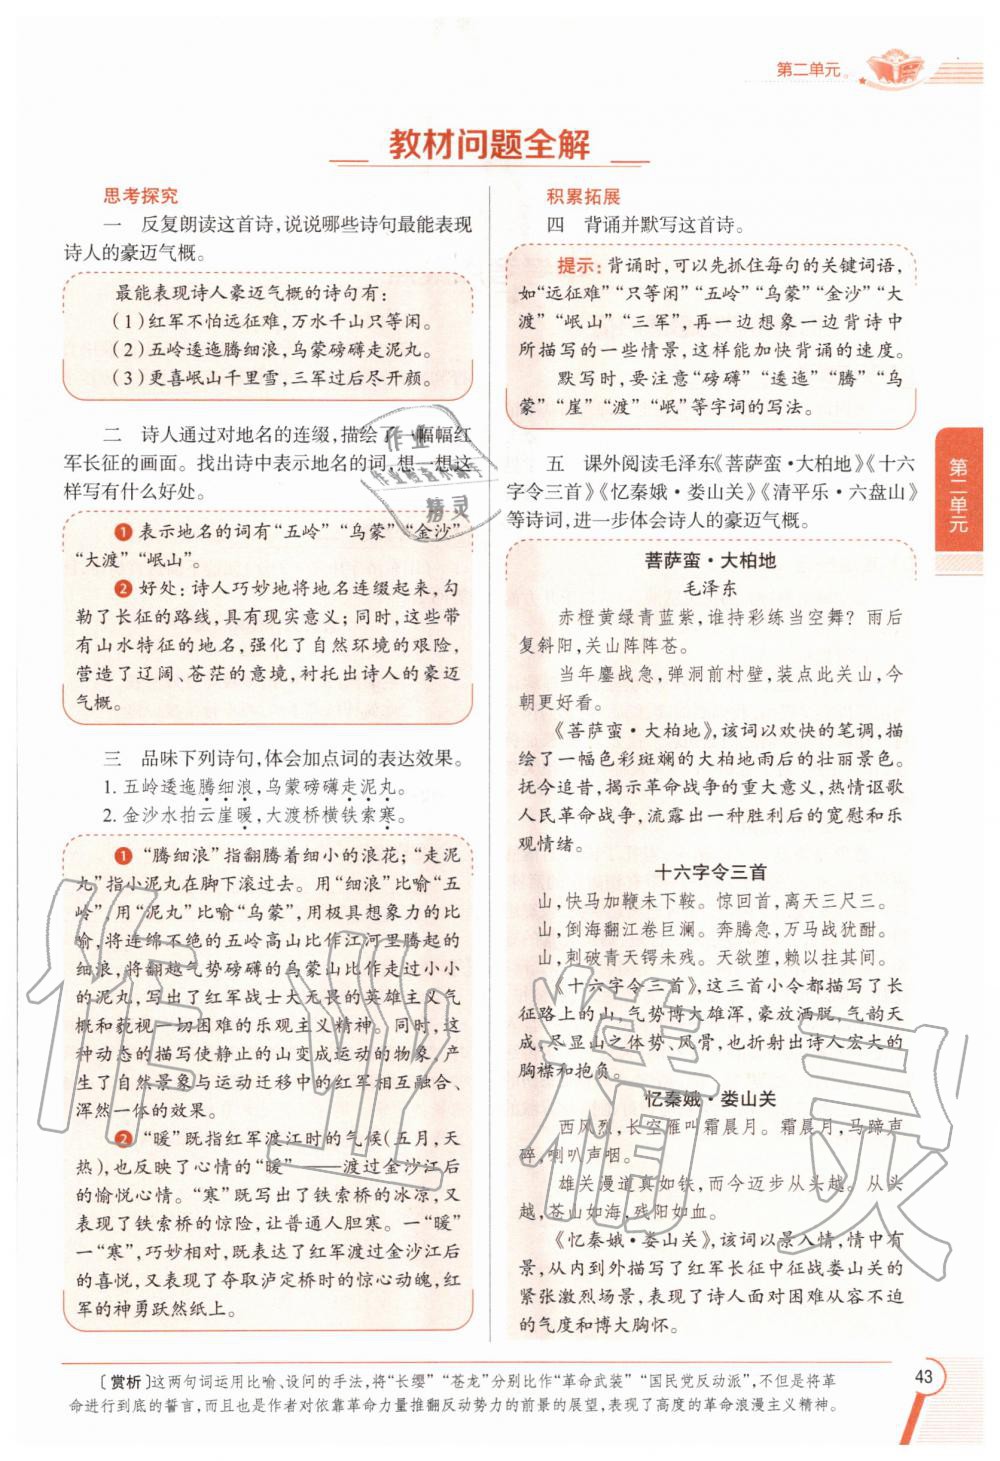 第二单元
教材问题全解
思考探究
一　反复朗读这首诗，说说哪些诗句最能表现
诗人的豪迈气概。
最能表现诗人豪迈气概的诗句有：
（1）红军不怕远征难，万水千山只等闲。
（2）五岭逶迤腾细浪，乌蒙磅礴走泥丸。
（3）更喜岷山千里雪，三军过后尽开颜。
二　诗人通过对地名的连缀，描绘了一幅幅红
军长征的画面。找出诗中表示地名的词，想一想这
样写有什么好处。
❶ 表示地名的词有“五岭”“乌蒙”“金沙”
“大渡”“岷山”。
❷ 好处：诗人巧妙地将地名连缀起来，勾
勒了长征的路线，具有现实意义；同时，这些带
有山水特征的地名，强化了自然环境的艰险，
营造了辽阔、苍茫的意境，衬托出诗人的豪迈
气概。
三　品味下列诗句，体会加点词的表达效果。
1. 五岭逶迤腾细浪，乌蒙磅礴走泥丸。
2. 金沙水拍云崖暖，大渡桥横铁索寒。
❶ “腾细浪”指翻腾着细小的浪花；“走泥
丸”指小泥丸在脚下滚过去。用“细浪”比喻“五
岭”，用“泥丸”比喻“乌蒙”，用极具想象力的比
喻，将连绵不绝的五岭高山比作江河里腾起的
细浪，将翻越气势磅礴的乌蒙山比作走过小小
的泥丸，写出了红军战士大无畏的英雄主义气
概和藐视一切困难的乐观主义精神。同时，这
种动态的描写使静止的山变成运动的物象，产
生了自然景象与运动迁移中的红军相互融合、
浑然一体的效果。
❷ “暖”既指红军渡江时的气候（五月，天
热），也反映了心情的“暖”——渡过金沙江后
的愉悦心情。“寒”既写出了铁索桥的冰凉，又
表现了铁索桥的惊险，让普通人胆寒。一“暖”
一“寒”，巧妙相对，既表达了红军渡过金沙江后
的喜悦，又表现了夺取泸定桥时的惊心动魄，红
军的神勇跃然纸上。
积累拓展
四　背诵并默写这首诗。
提示：背诵时，可以先抓住每句的关键词语，
如“远征难”“只等闲”“五岭”“乌蒙”“金沙”“大
渡”“岷山”“三军”，再一边想象一边背诗中
所描写的一些情景，这样能加快背诵的速度。
默写时，要注意“磅礴”“逶迤”“腾”“乌
蒙”“崖”“渡”“岷”等字词的写法。
五　课外阅读毛泽东《菩萨蛮·大柏地》《十六
字令三首》《忆秦娥·娄山关》《清平乐·六盘山》
等诗词，进一步体会诗人的豪迈气概。
菩萨蛮·大柏地
毛泽东
赤橙黄绿青蓝紫，谁持彩练当空舞？雨后
复斜阳，关山阵阵苍。
当年鏖战急，弹洞前村壁，装点此关山，今
朝更好看。
《菩萨蛮·大柏地》，该词以欢快的笔调，描
绘了一幅色彩斑斓的大柏地雨后的壮丽景色。
抚今追昔，揭示革命战争的重大意义，热情讴歌
人民革命战争，流露出一种胜利后的宽慰和乐
观情绪。
十六字令三首
山，快马加鞭未下鞍。惊回首，离天三尺三。
山，倒海翻江卷巨澜。奔腾急，万马战犹酣。
山，刺破青天锷未残。天欲堕，赖以拄其间。
《十六字令三首》，这三首小令都描写了长
征路上的山，气势博大雄浑，豪放洒脱，气韵天
成，尽显山之体势、风骨，也折射出诗人宏大的
胸襟和抱负。
忆秦娥·娄山关
西风烈，长空雁叫霜晨月。霜晨月，马蹄声
碎，喇叭声咽。
雄关漫道真如铁，而今迈步从头越。从头
越，苍山如海，残阳如血。
《忆秦娥·娄山关》，该词以景入情，情中有
景，从内到外描写了红军长征中征战娄山关的
紧张激烈场景，表现了诗人面对困难从容不迫
的气度和博大胸怀。
第二单元
［赏析］这两句词运用比喻、设问的手法，将“长缨”“苍龙”分别比作“革命武装”“国民党反动派”，不但是将革
命进行到底的誓言，而且也是作者对依靠革命力量推翻反动势力的前景的展望，表现了高度的革命浪漫主义精神。
43
作业
精灵
作业精灵